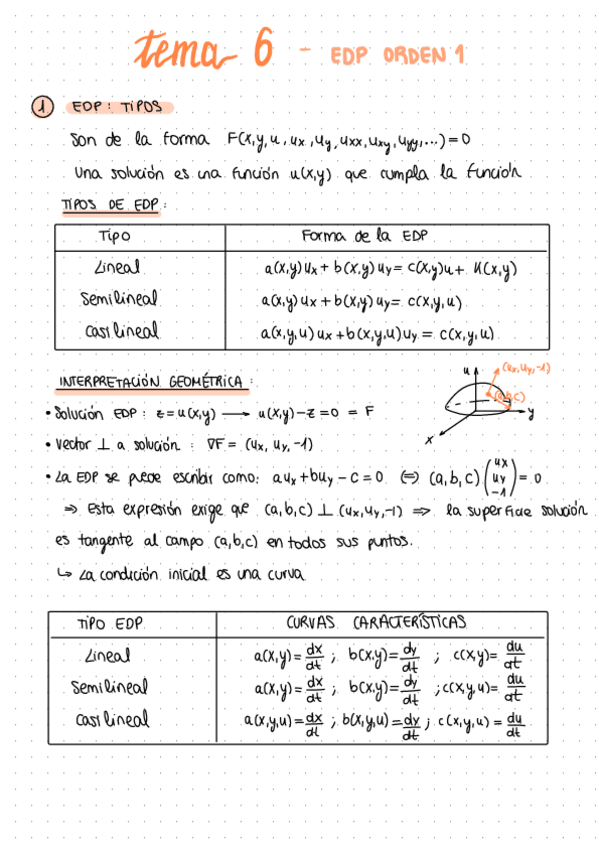 tema 6 - EDP ORDEN 1
① EDP: TIPOS
Son de la forma F(x,y,u,ux,uy,uxx,uxy,uyy,...)=0
Una solución es una función u(x,y) que cumpla la función
TIPOS DE EDP:
Tipo Forma de la EDP
Lineal a(x,y)ux + b(x,y)uy = c(x,y)u + K(x,y)
Semilineal a(x,y)ux + b(x,y)uy = c(x,y,u)
Casilineal a(x,y,u)ux + b(x,y,u)uy = c(x,y,u)
INTERPRETACIÓN GEOMÉTRICA:
u (ux,uy,-1)
(a,b,c)
y
x
• Solución EDP: z=u(x,y) ⟶ u(x,y)-z=0 = F
• Vector ⊥ a solución: ∇F = (ux, uy, -1)
• La EDP se puede escribir como: aux+buy-c=0 ⇔ (a,b,c) (ux uy -1) = 0
⇒ Esta expresión exige que (a,b,c) ⊥ (ux,uy,-1) ⇒ la superficie solución
es tangente al campo (a,b,c) en todos sus puntos.
↳ La condición inicial es una curva
TIPO EDP CURVAS CARACTERÍSTICAS
Lineal a(x,y)=dx/dt ; b(x,y)=dy/dt ; c(x,y)=du/dt
Semilineal a(x,y)=dx/dt ; b(x,y)=dy/dt ; c(x,y,u)=du/dt
Casilineal a(x,y,u)=dx/dt ; b(x,y,u)=dy/dt ; c(x,y,u)=du/dt